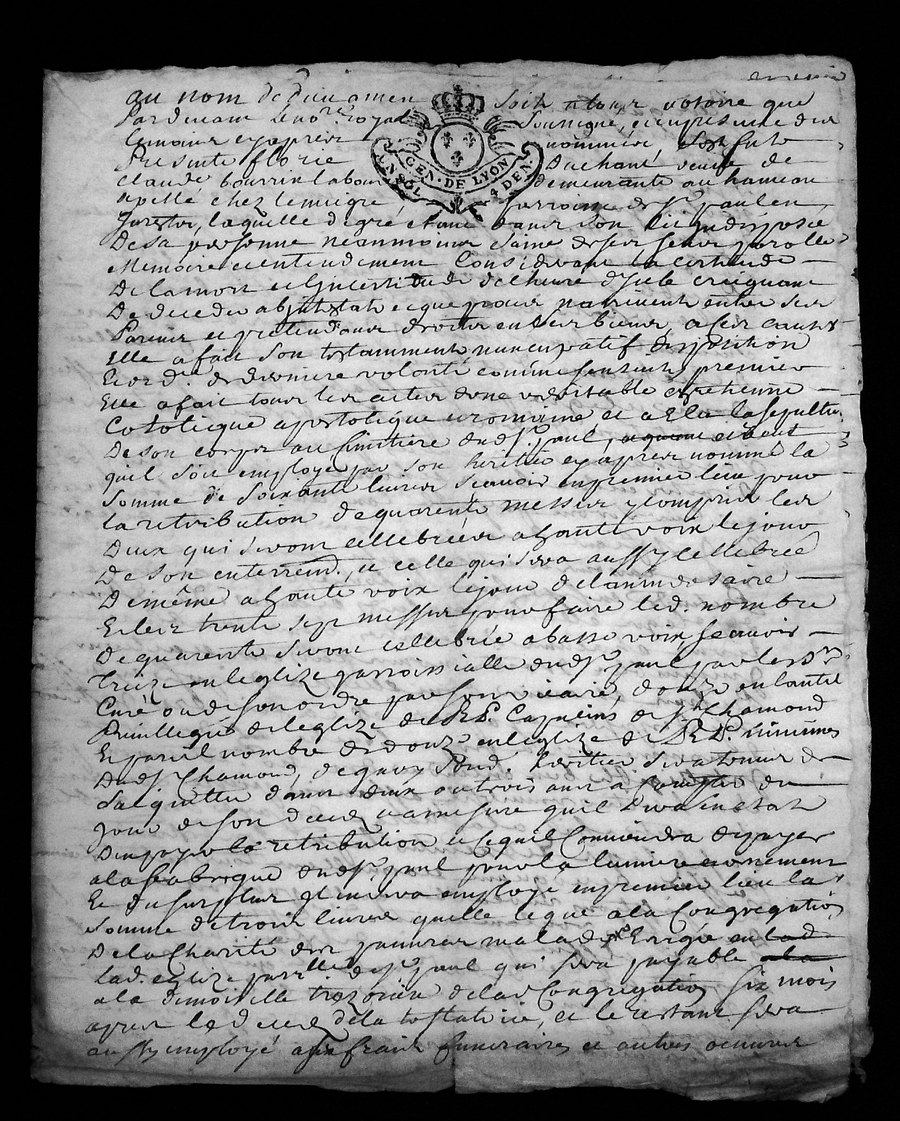 au nom de dieu amen Soit atous notoire que
Pardevant Le no.re royal Soussigné, et en presence des
temoins cy apres nommés, Sest fute
presente florie Duchant veuve de
claude bourrin labour demeurante au hameau
apellé chez lemigre, parroisse de St. paul en
Jarestz, laquelle de gré etant dans son lit indisposée
De sa personne neanmoins saine de ses sens, parolle
Memoire et entendement Considerant la certitude
De la mort et lincertitude de lheure dicelle craignant
De deceder abintestat et que procès narrivent entre ses
Parents et pretendants droits en ses biens, a ses causes
Elle a fait son testamment nuncupatif disposition
et ord. de derniere volonté comme sensuit, premier
Elle a fait tous les actes dune veritable chretienne
Catolique apostolique et romaine et a Elu la sepulture
De son corps au simitiere dud. St. paul, et veut
quil soit employé par son heritier cy apres nommé la
somme de soixante livres scavoir en premier lieu pour
la retribution de quarente messes y compris les
Deux qui seront cellebrées a haute voix le jour
De son enterrem. et celle qui sera aussy cellebrée
De même a haute voix le jour de laniversaire
Et les trente sept messes pour faire led. nombre
De quarente seront cellebrée a basse voix scavoir
Treize en leglize parroissialle dud. St. paul par le Sr.
Curé ou de son ordre par son vicaire, douze en lautel
Privillegié de leglize des R.P. Capucins de St. Chamond
Et pareil nombre de douze en leglize des R.P. minimes
Dud. St. Chamond, de quoy sond. heritier sera tenu de
Saquitter dans deux ou trois ans a compter du
jour de son deces et a mesure quil sera en etat
Den payer la retribution et ce quil Conviendra de payer
a la fabrique dud. St. paul pour la lumiere et ornement
Et du surplus il en sera employé en premier lieu la
somme de trois livres quelle legue a la Congregation
De la Charité des pauvres malades Erigée en
Lad. eglize parrlle de St. paul qui sera payable
a la demoiselle trezoriere de lad. Congregation six mois
apres le deces de la testatrice, et le restant sera
aussy employé aux fraix funeraires et autres oeuvres
GEN. DE LYON
4 DEN.